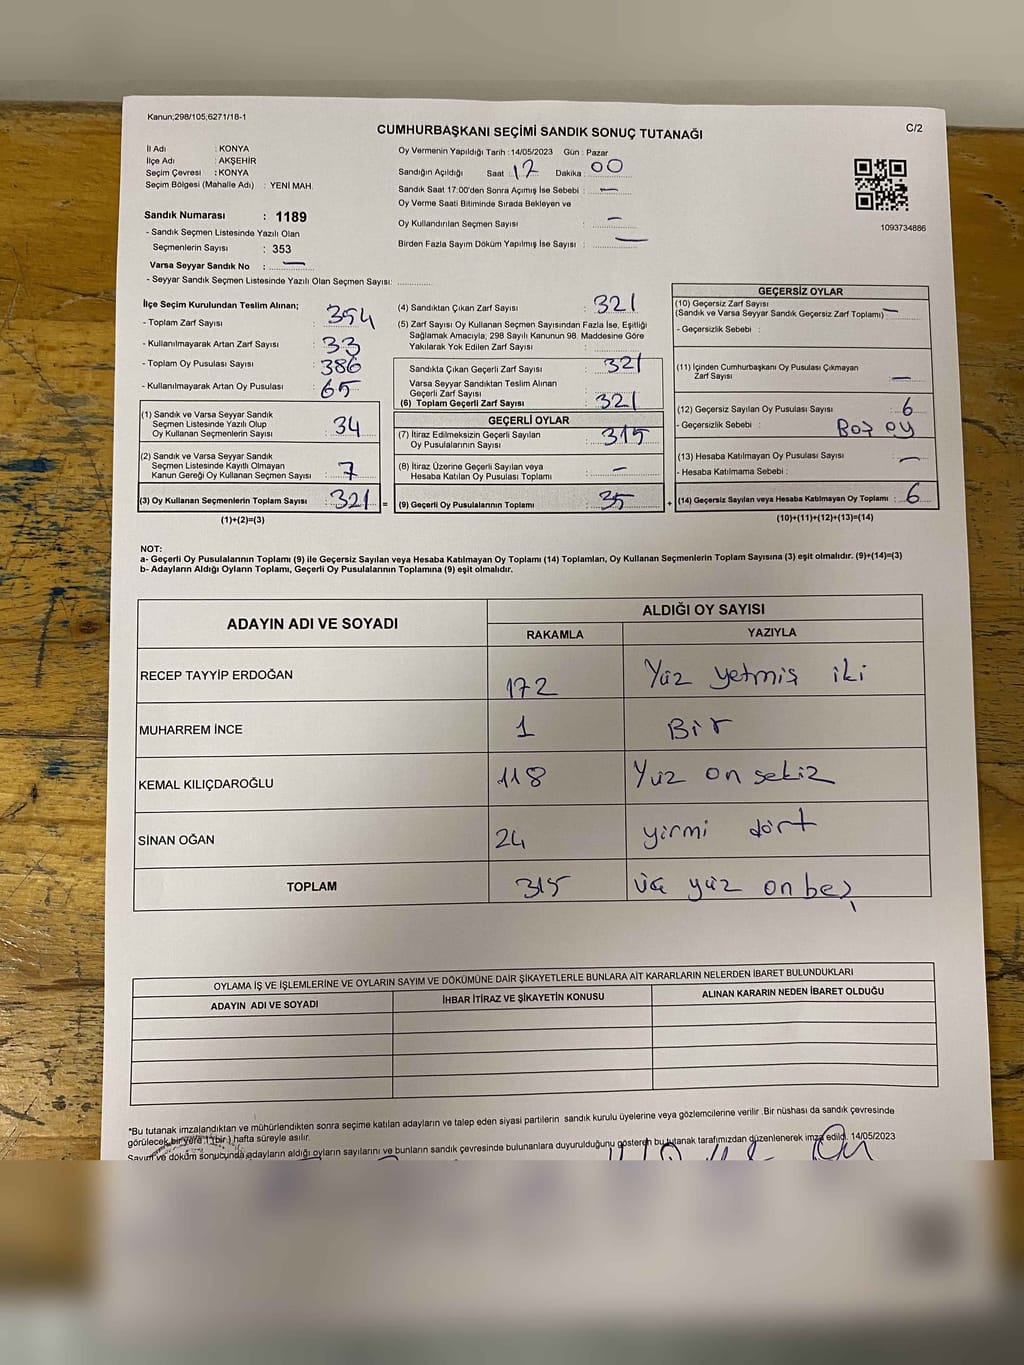 Kanun;298/105;6271/18-1
C/2
CUMHURBAŞKANI SEÇİMİ SANDIK SONUÇ TUTANAĞI
İl Adı : KONYA
İlçe Adı : AKŞEHİR
Seçim Çevresi : KONYA
Seçim Bölgesi (Mahalle Adı) : YENİ MAH.
Sandık Numarası : 1189
- Sandık Seçmen Listesinde Yazılı Olan
Seçmenlerin Sayısı : 353
Varsa Seyyar Sandık No : —
- Seyyar Sandık Seçmen Listesinde Yazılı Olan Seçmen Sayısı: ..............
Oy Vermenin Yapıldığı Tarih : 14/05/2023 Gün : Pazar
Sandığın Açıldığı Saat : 17 Dakika : 00
Sandık Saat 17:00'den Sonra Açılmış İse Sebebi : —
Oy Verme Saati Bitiminde Sırada Bekleyen ve
Oy Kullandırılan Seçmen Sayısı : —
Birden Fazla Sayım Döküm Yapılmış İse Sayısı : —
1093734886
İlçe Seçim Kurulundan Teslim Alınan;
- Toplam Zarf Sayısı : 354
- Kullanılmayarak Artan Zarf Sayısı : 33
- Toplam Oy Pusulası Sayısı : 386
- Kullanılmayarak Artan Oy Pusulası : 65
(1) Sandık ve Varsa Seyyar Sandık
Seçmen Listesinde Yazılı Olup
Oy Kullanan Seçmenlerin Sayısı : 34
(2) Sandık ve Varsa Seyyar Sandık
Seçmen Listesinde Kayıtlı Olmayan
Kanun Gereği Oy Kullanan Seçmen Sayısı : 7
(3) Oy Kullanan Seçmenlerin Toplam Sayısı : 321 =
(1)+(2)=(3)
(4) Sandıktan Çıkan Zarf Sayısı : 321
(5) Zarf Sayısı Oy Kullanan Seçmen Sayısından Fazla İse, Eşitliği
Sağlamak Amacıyla; 298 Sayılı Kanunun 98. Maddesine Göre
Yakılarak Yok Edilen Zarf Sayısı :
Sandıkta Çıkan Geçerli Zarf Sayısı : 321
Varsa Seyyar Sandıktan Teslim Alınan
Geçerli Zarf Sayısı :
(6) Toplam Geçerli Zarf Sayısı : 321
GEÇERLİ OYLAR
(7) İtiraz Edilmeksizin Geçerli Sayılan
Oy Pusulalarının Sayısı : 315
(8) İtiraz Üzerine Geçerli Sayılan veya
Hesaba Katılan Oy Pusulası Toplamı : —
(9) Geçerli Oy Pusulalarının Toplamı : 35 +
GEÇERSİZ OYLAR
(10) Geçersiz Zarf Sayısı
(Sandık ve Varsa Seyyar Sandık Geçersiz Zarf Toplamı) —
- Geçersizlik Sebebi :
(11) İçinden Cumhurbaşkanı Oy Pusulası Çıkmayan
Zarf Sayısı —
(12) Geçersiz Sayılan Oy Pusulası Sayısı : 6
- Geçersizlik Sebebi : Boş oy
(13) Hesaba Katılmayan Oy Pusulası Sayısı : —
- Hesaba Katılmama Sebebi :
(14) Geçersiz Sayılan veya Hesaba Katılmayan Oy Toplamı : 6
(10)+(11)+(12)+(13)=(14)
NOT:
a- Geçerli Oy Pusulalarının Toplamı (9) ile Geçersiz Sayılan veya Hesaba Katılmayan Oy Toplamı (14) Toplamları, Oy Kullanan Seçmenlerin Toplam Sayısına (3) eşit olmalıdır. (9)+(14)=(3)
b- Adayların Aldığı Oyların Toplamı, Geçerli Oy Pusulalarının Toplamına (9) eşit olmalıdır.
ADAYIN ADI VE SOYADI
ALDIĞI OY SAYISI
RAKAMLA YAZIYLA
RECEP TAYYİP ERDOĞAN 172 Yüz yetmiş iki
MUHARREM İNCE 1 Bir
KEMAL KILIÇDAROĞLU 118 Yüz on sekiz
SİNAN OĞAN 24 yirmi dört
TOPLAM 315 üç yüz on beş
OYLAMA İŞ VE İŞLEMLERİNE VE OYLARIN SAYIM VE DÖKÜMÜNE DAİR ŞİKAYETLERLE BUNLARA AİT KARARLARIN NELERDEN İBARET BULUNDUKLARI
ADAYIN ADI VE SOYADI İHBAR İTİRAZ VE ŞİKAYETİN KONUSU ALINAN KARARIN NEDEN İBARET OLDUĞU
*Bu tutanak imzalandıktan ve mühürlendikten sonra seçime katılan adayların ve talep eden siyasi partilerin sandık kurulu üyelerine veya gözlemcilerine verilir .Bir nüshası da sandık çevresinde
görülecek bir yere 1 (bir ) hafta süreyle asılır.
Sayım ve döküm sonucunda adayların aldığı oyların sayılarını ve bunların sandık çevresinde bulunanlara duyurulduğunu gösteren bu tutanak tarafımızdan düzenlenerek imza edildi. 14/05/2023